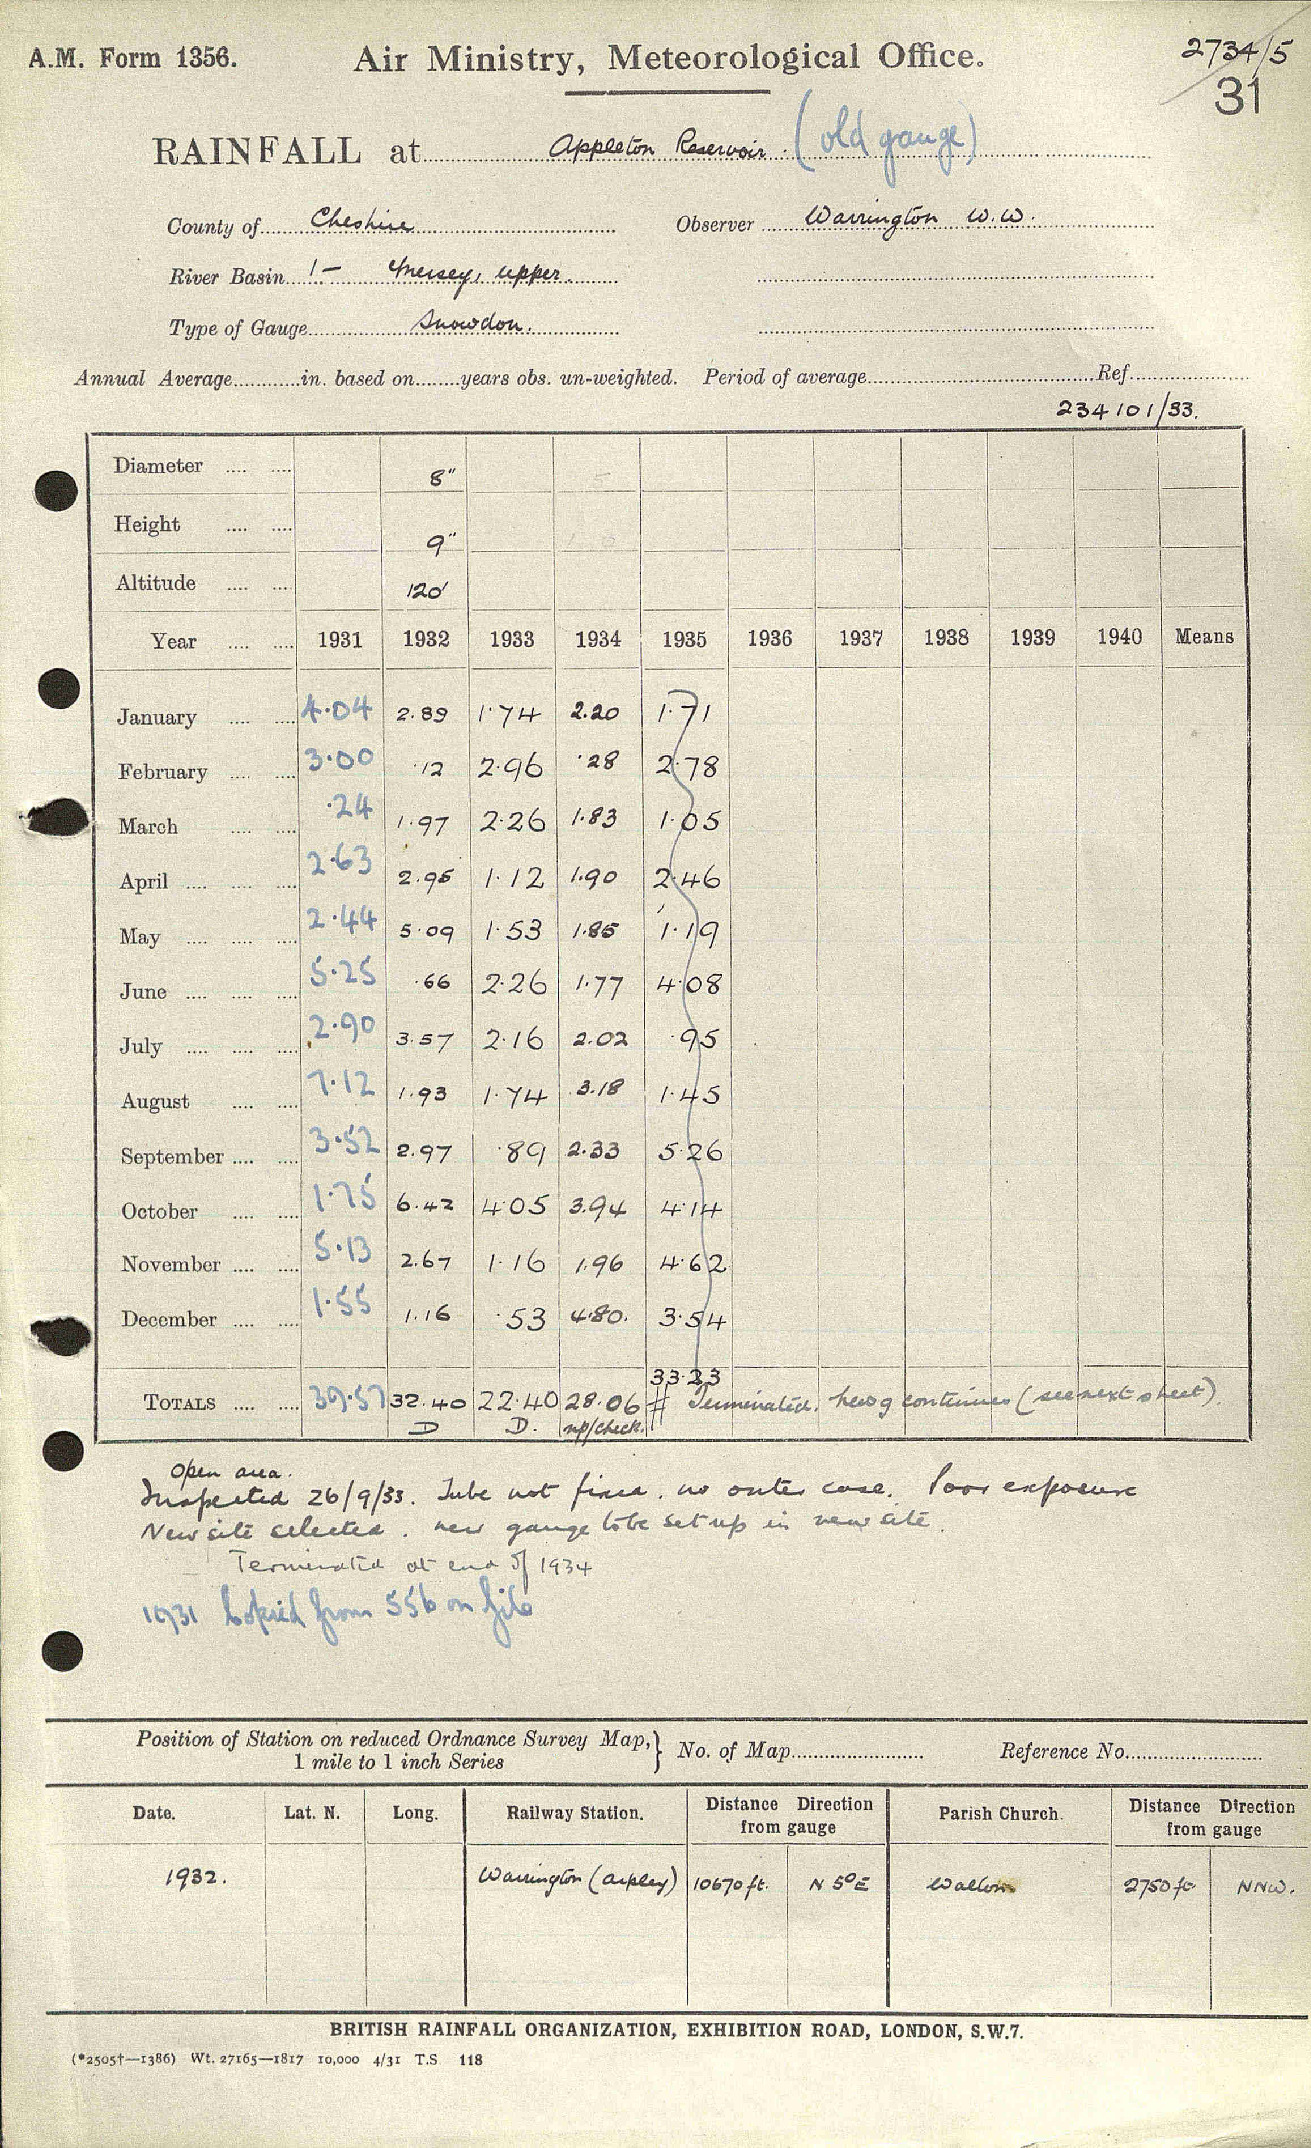 A.M. Form 1356.
Air Ministry, Meteorological Office.
2734/5
31
RAINFALL at Appleton Reservoir. (old gauge)
County of Cheshire Observer Warrington W.W.
River Basin 1— Mersey, upper.
Type of Gauge Snowdon.
Annual Average in. based on years obs. un-weighted. Period of average Ref.
234101/33.
Diameter 8"
Height 9"
Altitude 120'
Year 1931 1932 1933 1934 1935 1936 1937 1938 1939 1940 Means
January 4.04 2.89 1.74 2.20 1.71
February 3.00 .12 2.96 .28 2.78
March .24 1.97 2.26 1.83 1.05
April 2.63 2.95 1.12 1.90 2.46
May 2.44 5.09 1.53 1.85 1.19
June 5.25 .66 2.26 1.77 4.08
July 2.90 3.57 2.16 2.02 .95
August 7.12 1.93 1.74 3.18 1.45
September 3.52 2.97 .89 2.33 5.26
October 1.75 6.42 4.05 3.94 4.14
November 5.13 2.67 1.16 1.96 4.62
December 1.55 1.16 .53 4.80. 3.54
33.23
TOTALS 39.57 32.40 22.40 28.06 # Terminated. new g continues (see next sheet)
D D. np/check.
Open area.
Inspected 26/9/33. Tube not fixed. no outer case. Poor exposure
New site selected. new gauge to be set up in new site.
Terminated at end of 1934
1931 Copied from 556 on file
Position of Station on reduced Ordnance Survey Map, 1 mile to 1 inch Series } No. of Map Reference No.
Date. Lat. N. Long. Railway Station. Distance Direction from gauge Parish Church. Distance Direction from gauge
1932. Warrington (Arpley) 10670 ft. N 5° E Walton 2750 ft NNW.
BRITISH RAINFALL ORGANIZATION, EXHIBITION ROAD, LONDON, S.W.7.
(*2505†—1386) Wt. 27165—1817 10,000 4/31 T.S 118